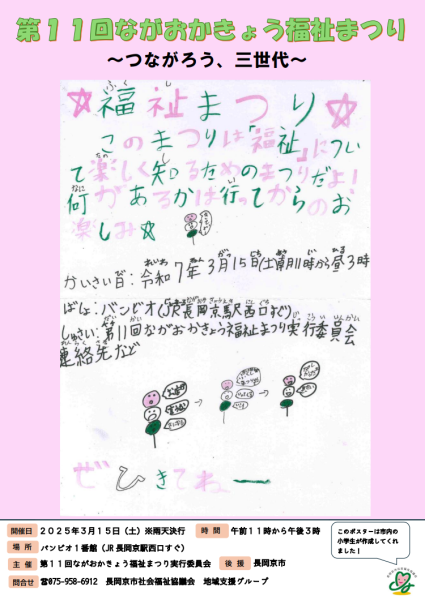 第11回ながおかきょう福祉まつり
～つながろう、三世代～
☆福祉まつり☆
このまつりは「福祉」につい
て楽しく知るためのまつりだよ!
何があるかは行ってからのお
楽しみ☆
かいさい日:令和7年3月15日(土)
11時から昼3時
ばしょ:バンビオ(JR長岡京駅西口すぐ)
しゅさい:第11回ながおかきょう福祉まつり実行委員会
連絡先など
ぜひきてねー
開催日 2025年3月15日(土)※雨天決行 時間 午前11時から午後3時
場所 バンビオ1番館(JR長岡京駅西口すぐ)
主催 第11回ながおかきょう福祉まつり実行委員会 後援 長岡京市
問合せ ☎075-958-6912 長岡京市社会福祉協議会 地域支援グループ
このポスターは市内の
小学生が作成してくれ
ました!